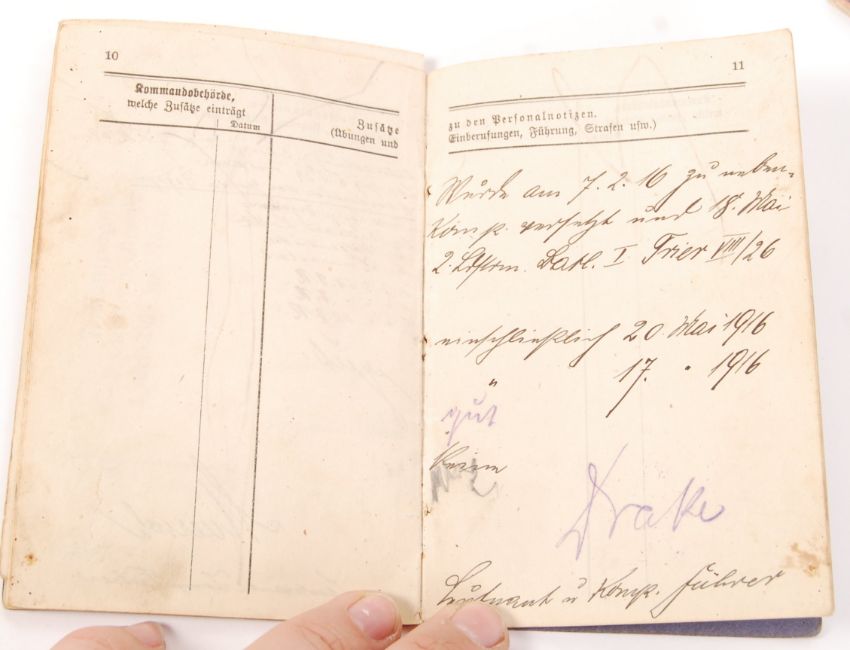 10
Kommandobehörde,
welche Zusätze einträgt
Datum
Zusätze
(Übungen und
11
zu den Personalnotizen.
Einberufungen, Führung, Strafen usw.)
Wurde am 7. 2. 16 zu
Komp. versetzt und 18. Mai
2. Lstrm. Batl. I Trier VIII/26
einschließlich 20. Mai 1916
" 17. " 1916
gut
Keine
Drake
Leutnant u Komp. Führer